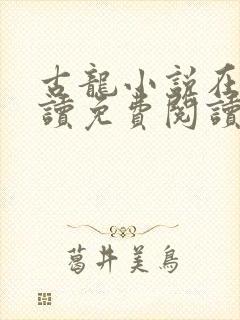 古龍小說在
讀免費閱讀
葛井美鳥